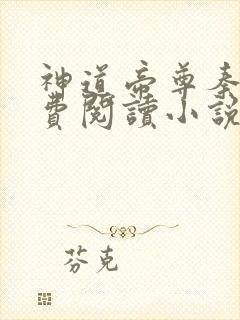 神道帝尊秦
費閱讀小說
芬克